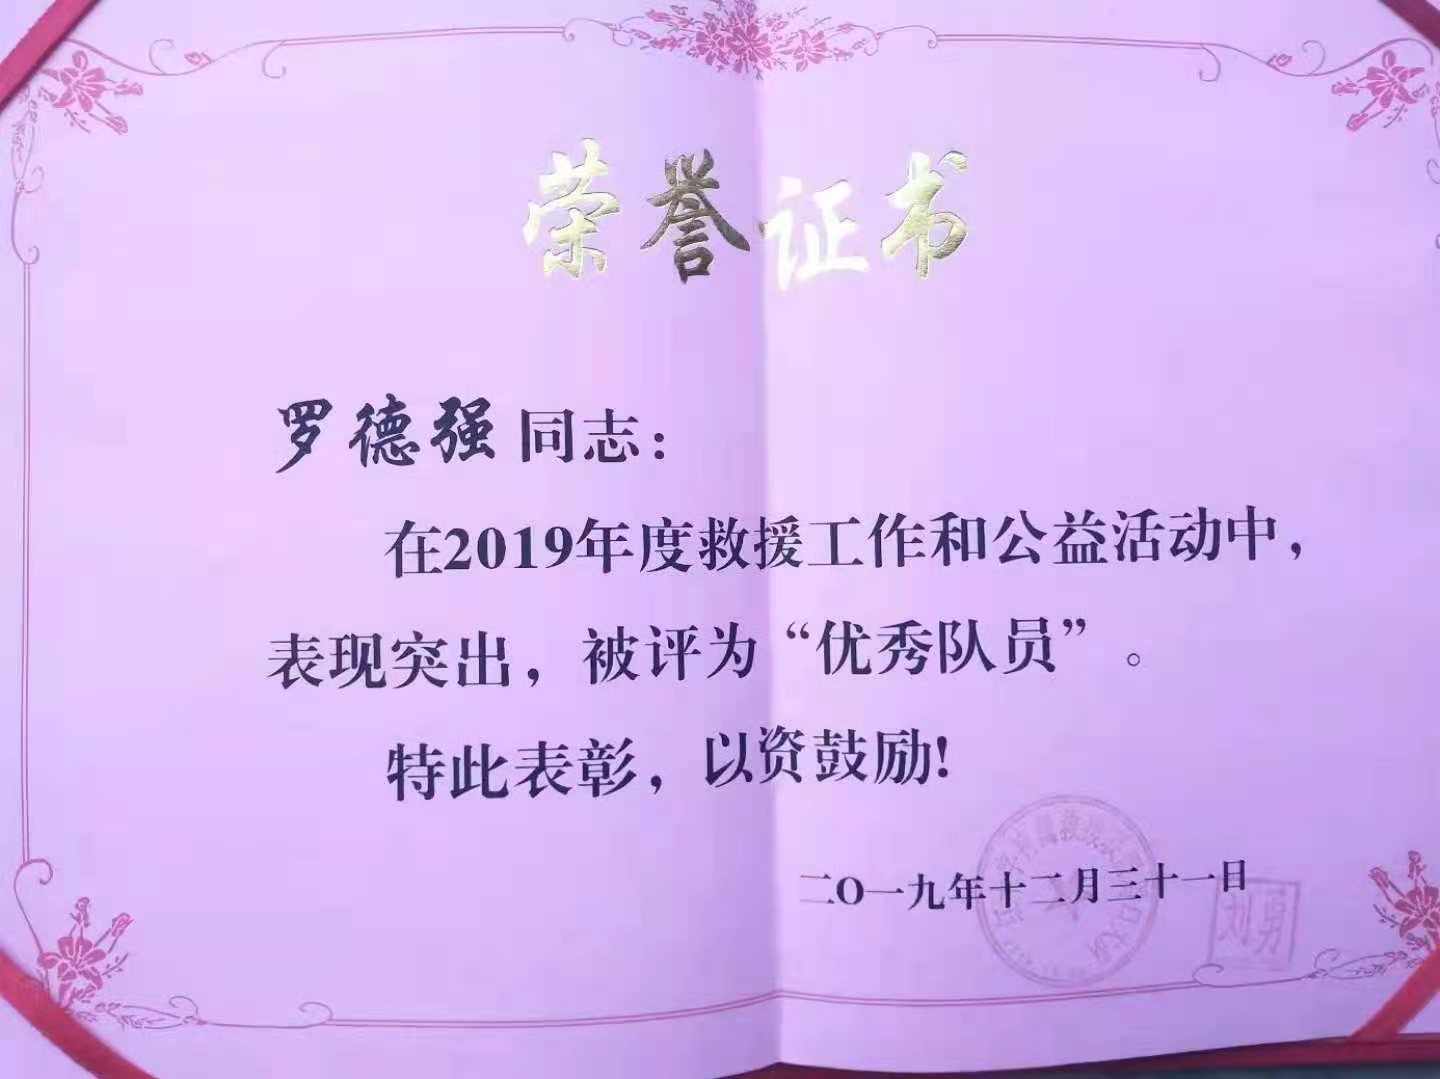 荣誉证书
罗德强同志：
在2019年度救援工作和公益活动中，
表现突出，被评为“优秀队员”。
特此表彰，以资鼓励!
二O一九年十二月三十一日